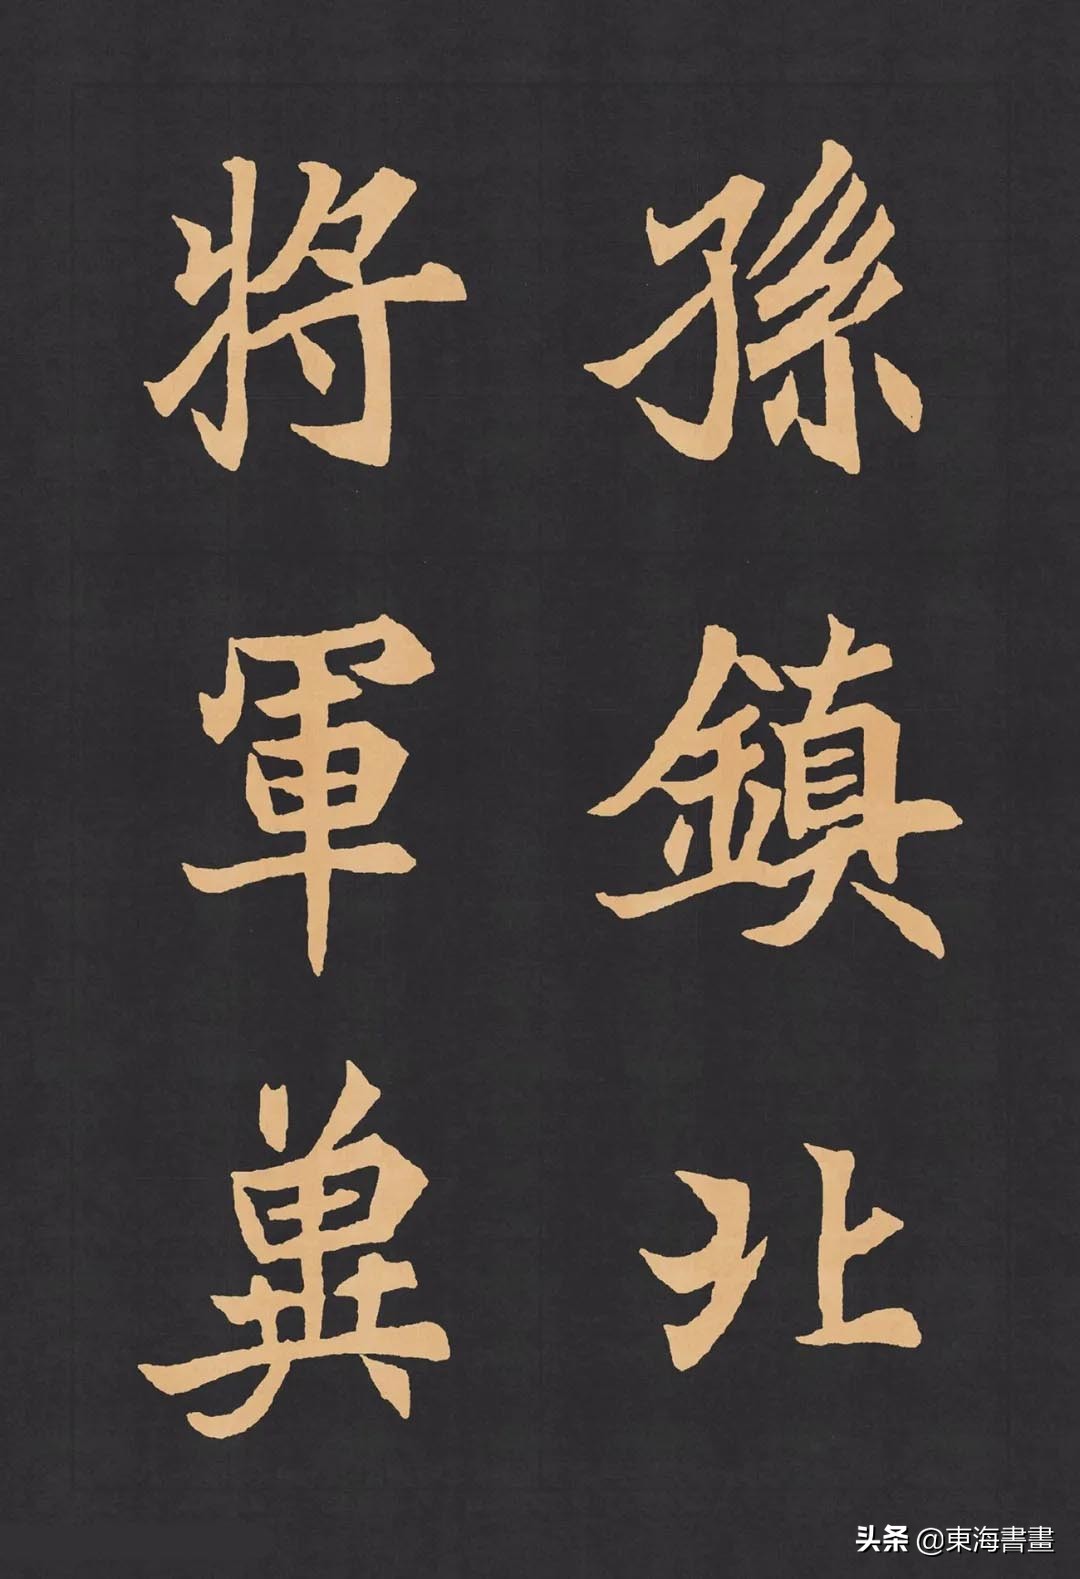 孫鎮北
將軍兾
头条 @東海書畫